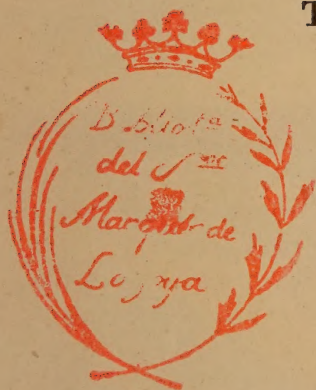 T
Bibliota
del Sor
Marques de
Lozoya